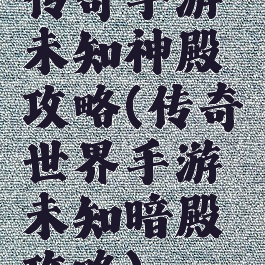 传奇手游
未知神殿
攻略(传奇
世界手游
未知暗殿
攻略)